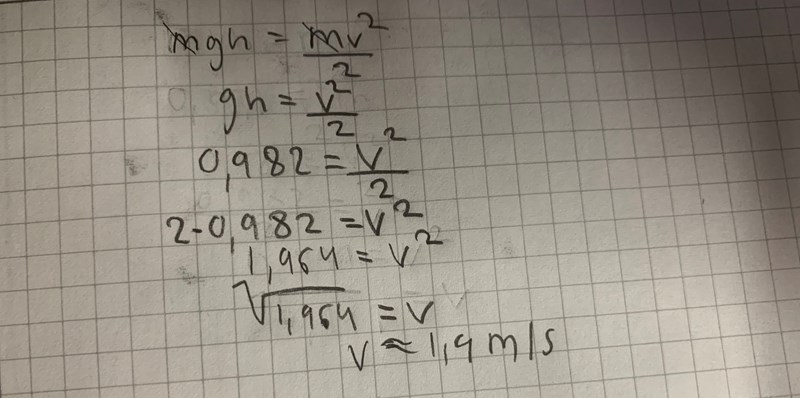 mgh = mv²/2
gh = v²/2
0,982 = v²/2
2·0,982 = v²
1,964 = v²
√1,964 = v
v ≈ 1,4 m/s